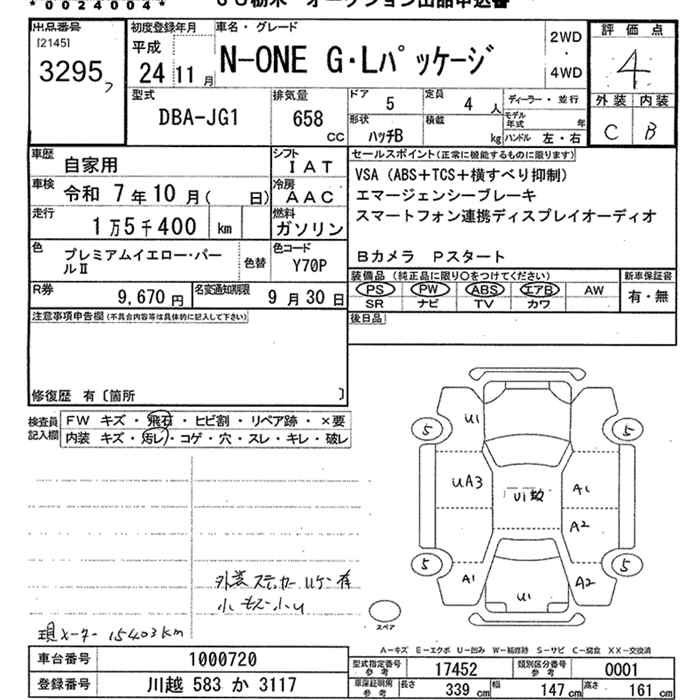 *0024004*
出品番号
[2145]
3295
フ
初度登録年月
平成
24 11月
車名・グレード
N-ONE G・Lパッケージ
2WD
・
4WD
評価点
4
外装 内装
C B
型式
DBA-JG1
排気量
658
CC
ドア 5
定員 4 人
ディーラー・並行
形状
ハッチB
積載
kg
モデル年式 年
ハンドル 左・右
車歴 自家用
シフト
I A T
車検 令和 7年10月( 日)
冷房
A A C
走行 1万5千400 km
燃料
ガソリン
色 プレミアムイエロー・パールⅡ
色替
色コード
Y70P
R券 9,670円
名変通知期限
9月30日
セールスポイント(正常に機能するものに限ります)
VSA(ABS+TCS+横すべり抑制)
エマージェンシーブレーキ
スマートフォン連携ディスプレイオーディオ
Bカメラ Pスタート
装備品(純正品に限り○をつけてください)
新車保証書
PS PW ABS エアB AW
SR ナビ TV カワ
有・無
後日品
注意事項申告欄(不具合内容等は具体的に記入して下さい)
修復歴 有〔箇所 〕
検査員記入欄
FW キズ・飛石・ヒビ割・リペア跡・×要
内装 キズ・汚レ・コゲ・穴・スレ・キレ・破レ
U1
5 5
UA3
A1
A2
5 5
A1
A2
U1
外装ステッカーハケン有
小キズ小U
現メーター 15403km
スペア
A-キズ E-エクボ U-凹み W-補修跡 S-サビ C-腐食 XX-交換済
車台番号 1000720
登録番号 川越 583 か 3117
型式指定番号 参考 17452
類別区分番号 参考 0001
車庫証明用 参考 長さ 339cm 幅 147cm 高さ 161cm